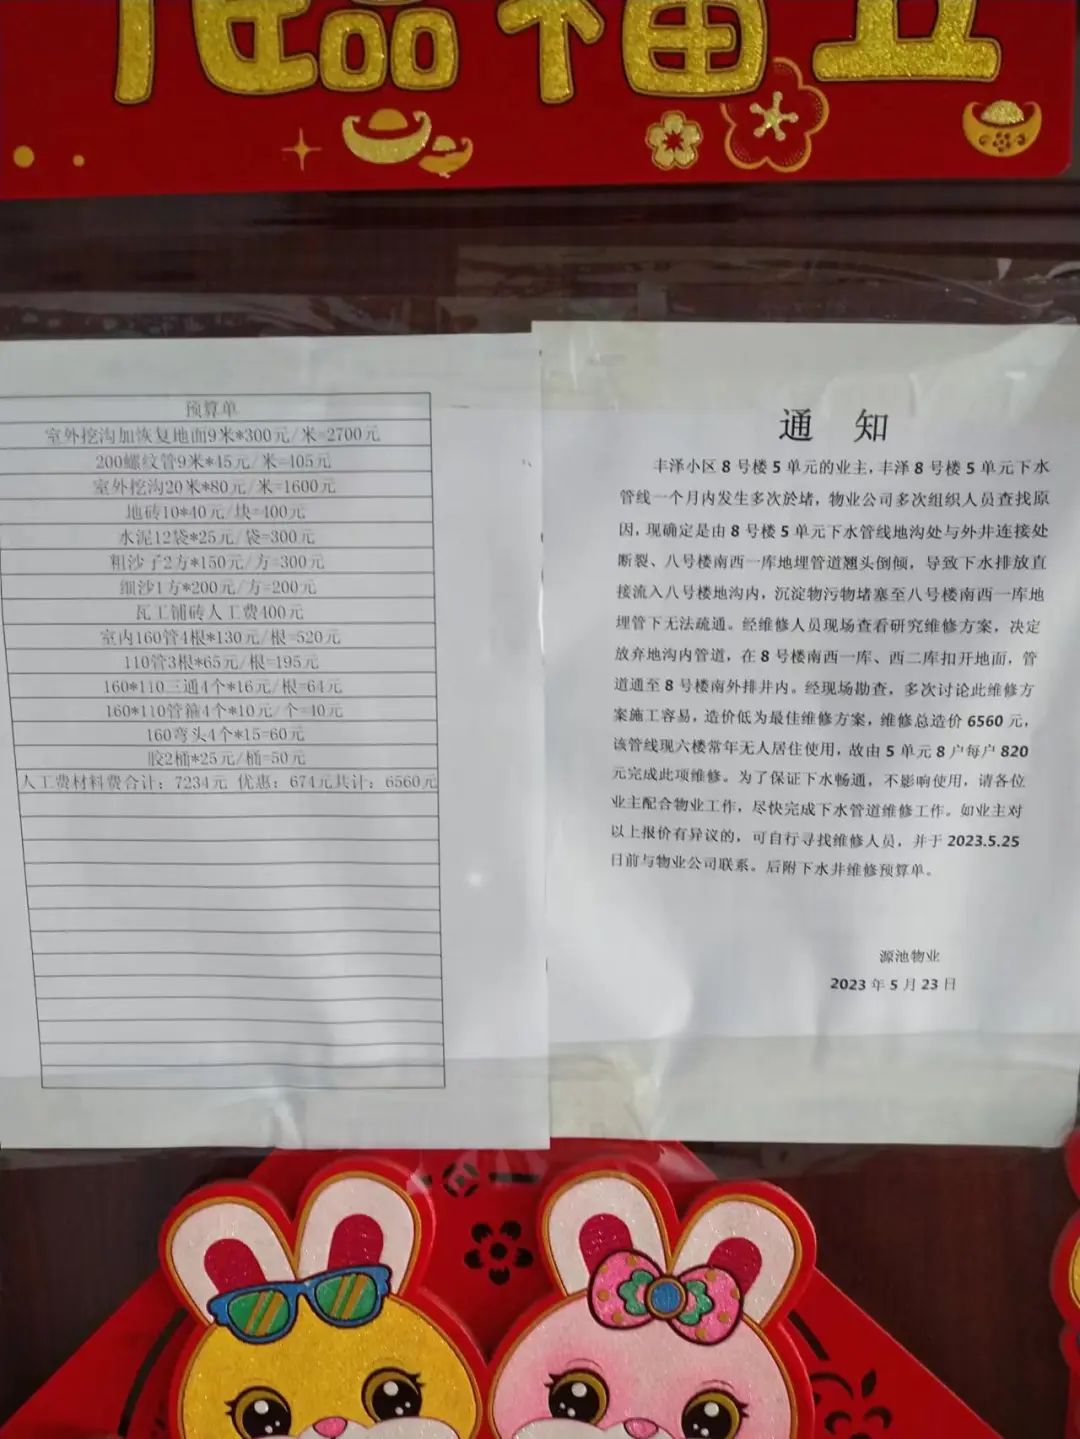 临福五
预算单
室外挖沟加恢复地面9米*300元/米=2700元
200螺纹管9米*45元/米=405元
室外挖沟20米*80元/米=1600元
地砖10*40元/块=400元
水泥12袋*25元/袋=300元
粗沙子2方*150元/方=300元
细沙1方*200元/方=200元
瓦工铺砖人工费400元
室内160管4根*130元/根=520元
110管3根*65元/根=195元
160*110三通4个*16元/根=64元
160*110管箍4个*10元/个=40元
160弯头4个*15=60元
胶2桶*25元/桶=50元
人工费材料费合计：7234元 优惠：674元共计：6560元
通 知
丰泽小区 8 号楼 5 单元的业主，丰泽 8 号楼 5 单元下水
管线一个月内发生多次於堵，物业公司多次组织人员查找原
因，现确定是由 8 号楼 5 单元下水管线地沟处与外井连接处
断裂、八号楼南西一库地埋管道翘头倒倾，导致下水排放直
接流入八号楼地沟内，沉淀物污物堵塞至八号楼南西一库地
埋管下无法疏通。经维修人员现场查看研究维修方案，决定
放弃地沟内管道，在 8 号楼南西一库、西二库扣开地面，管
道通至 8 号楼南外排井内。经现场勘查，多次讨论此维修方
案施工容易，造价低为最佳维修方案，维修总造价 6560 元，
该管线现六楼常年无人居住使用，故由 5 单元 8 户每户 820
元完成此项维修。为了保证下水畅通，不影响使用，请各位
业主配合物业工作，尽快完成下水管道维修工作。如业主对
以上报价有异议的，可自行寻找维修人员，并于 2023.5.25
日前与物业公司联系。后附下水井维修预算单。
源池物业
2023 年 5 月 23 日